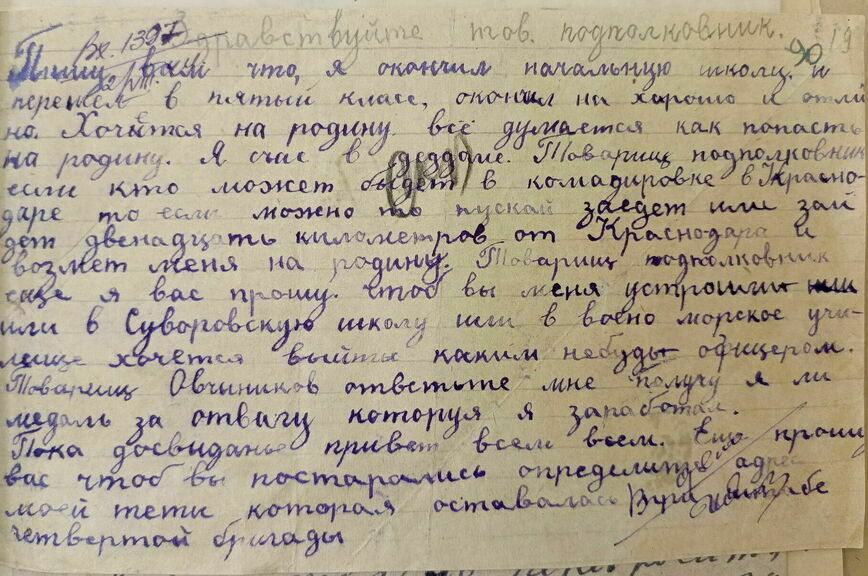 Здравствуйте тов. подполковник.
вх. 1397
90
19
Пишу вам что, я окончил начальную школу. и
перешел в пятый класс, окончил на хорошо и отли
но. Хочется на родину всё думается как попасть
на родину. Я счас в деддоме. Товарищ подполковник
если кто может будет в командировке в Красно-
даре то если можно то пускай заедет или зай
дет двенадцать километров от Краснодара и
возмет меня на родину. Товарищ подполковник
еще я вас прошу. чтоб вы меня устроили
или в Суворовскую школу или в воено морское учи-
лище хочется выйты каким небудь офицером.
Товарищ Овчиников ответьте мне получу я ли
медаль за отвагу которуя я заработал.
Пока досвиданье привет всем всем. Ещо прошу
вас чтоб вы постарались определить адрес
моей тети которая оставалась при штабе
четвертой бригады